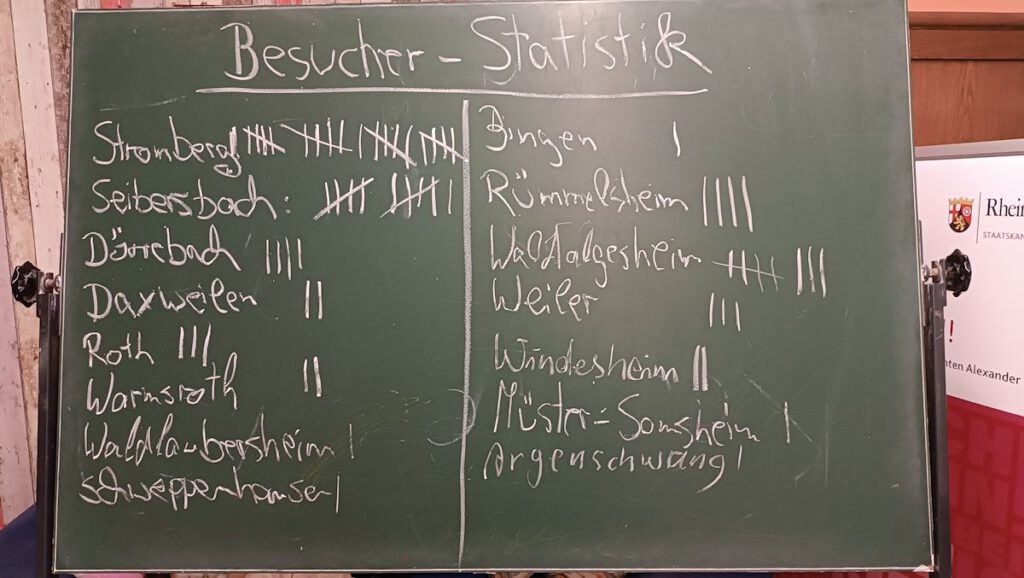 Besucher-Statistik
Stromberg
Seibersbach:
Dörrebach ||||
Daxweilen ||
Roth |||
Warmsroth ||
Waldlaubersheim |
Schweppenhausen |
Bingen |
Rümmelsheim ||||
Waldalgesheim
Weiler |||
Windesheim ||
Müster=Somsheim |
Argenschwang |
Rhein
STAATSKAN
!
nten Alexander